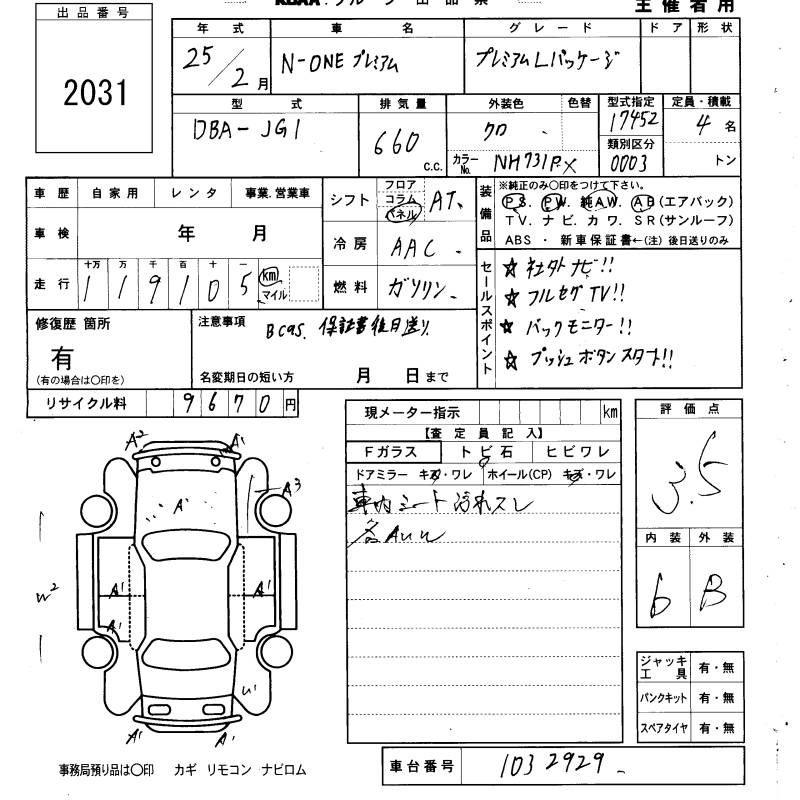 主催者用
出品番号
2031
年式 車名 グレード ドア 形状
25/2月 N-ONE プレミアム プレミアムLパッケージ
型式 排気量 外装色 色替 型式指定 定員・積載
DBA-JG1 660 c.c. クロ 17452 4名
カラーNo. NH731P.X 類別区分 0003 トン
車歴 自家用 レンタ 事業.営業車
車検 年 月
走行 十万 万 千 百 十 一
119105 km マイル
シフト フロア コラム パネル AT
冷房 AAC
燃料 ガソリン
装備品 ※純正のみ〇印をつけて下さい。
PS. PW. 純AW. AB(エアバック)
TV. ナビ. カワ. SR(サンルーフ)
ABS ・ 新車保証書←(注) 後日送りのみ
セールスポイント
☆ 社外ナビ!!
☆ フルセグTV!!
☆ バックモニター!!
☆ プッシュボタンスタート!!
修復歴 箇所
有
(有の場合は〇印を)
注意事項 Bcas. 保証書後日送り
名変期日の短い方 月 日まで
リサイクル料 9670円
現メーター指示 km
【査定員記入】
Fガラス トビ石 ヒビワレ
ドアミラー キズ・ワレ ホイール(CP) キズ・ワレ
車内シート汚れスレ
各AUW
評価点
3.5
内装 外装
6 B
ジャッキ工具 有・無
パンクキット 有・無
スペアタイヤ 有・無
A2 A1
A1 A3
W2 A1 A1
A1
U1
A1 A1
事務局預り品は〇印 カギ リモコン ナビロム
車台番号 1032929